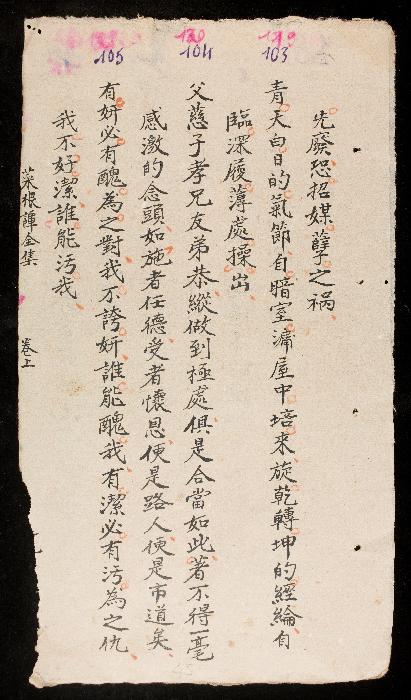 129
103
130
104
131
105
先發恐招媒孽之禍
青天白日的氣節自暗室漏屋中培來旋乾轉坤的經綸自
臨深履薄處操出
父慈子孝兄友弟恭縱做到極處俱是合當如此著不得一毫
感激的念頭如施者任德受者懷恩便是路人便是市道矣
有妍必有醜為之對我不誇妍誰能醜我有潔必有污為之仇
我不好潔誰能污我
菜根譚全集
卷上